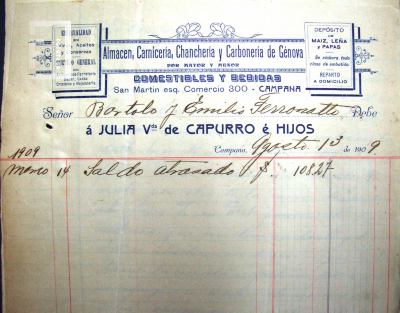 ESPECIALIDAD
EN
Vinos, Aceites
GENERAL
Almacen, Carnicería, Chancheria y Carbonería de Génova
POR MAYOR Y MENOR
COMESTIBLES Y BEBIDAS
San Martin esq. Comercio 300 - CAMPANA
DEPÓSITO
DE
MAIZ, LEÑA
y PAPAS
REPARTO
A DOMICILIO
Señor Bartolo y Emilio Ferronatto Debe
á JULIA Vda de CAPURRO é HIJOS
Campana, Agosto 13 de 1909.
1909
Marzo 14 Saldo atrasado $ 108.27